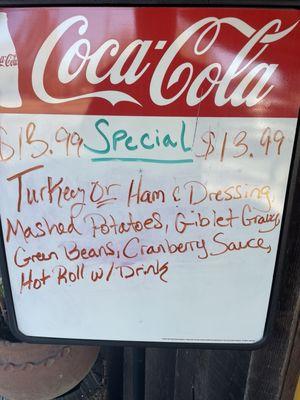 Coca-Cola
Coca-Cola
$13.99 Special $13.99
Turkey Or Ham & Dressing,
Mashed Potatoes, Giblet Gravy,
Green Beans, Cranberry Sauce,
Hot Roll w/ Drink